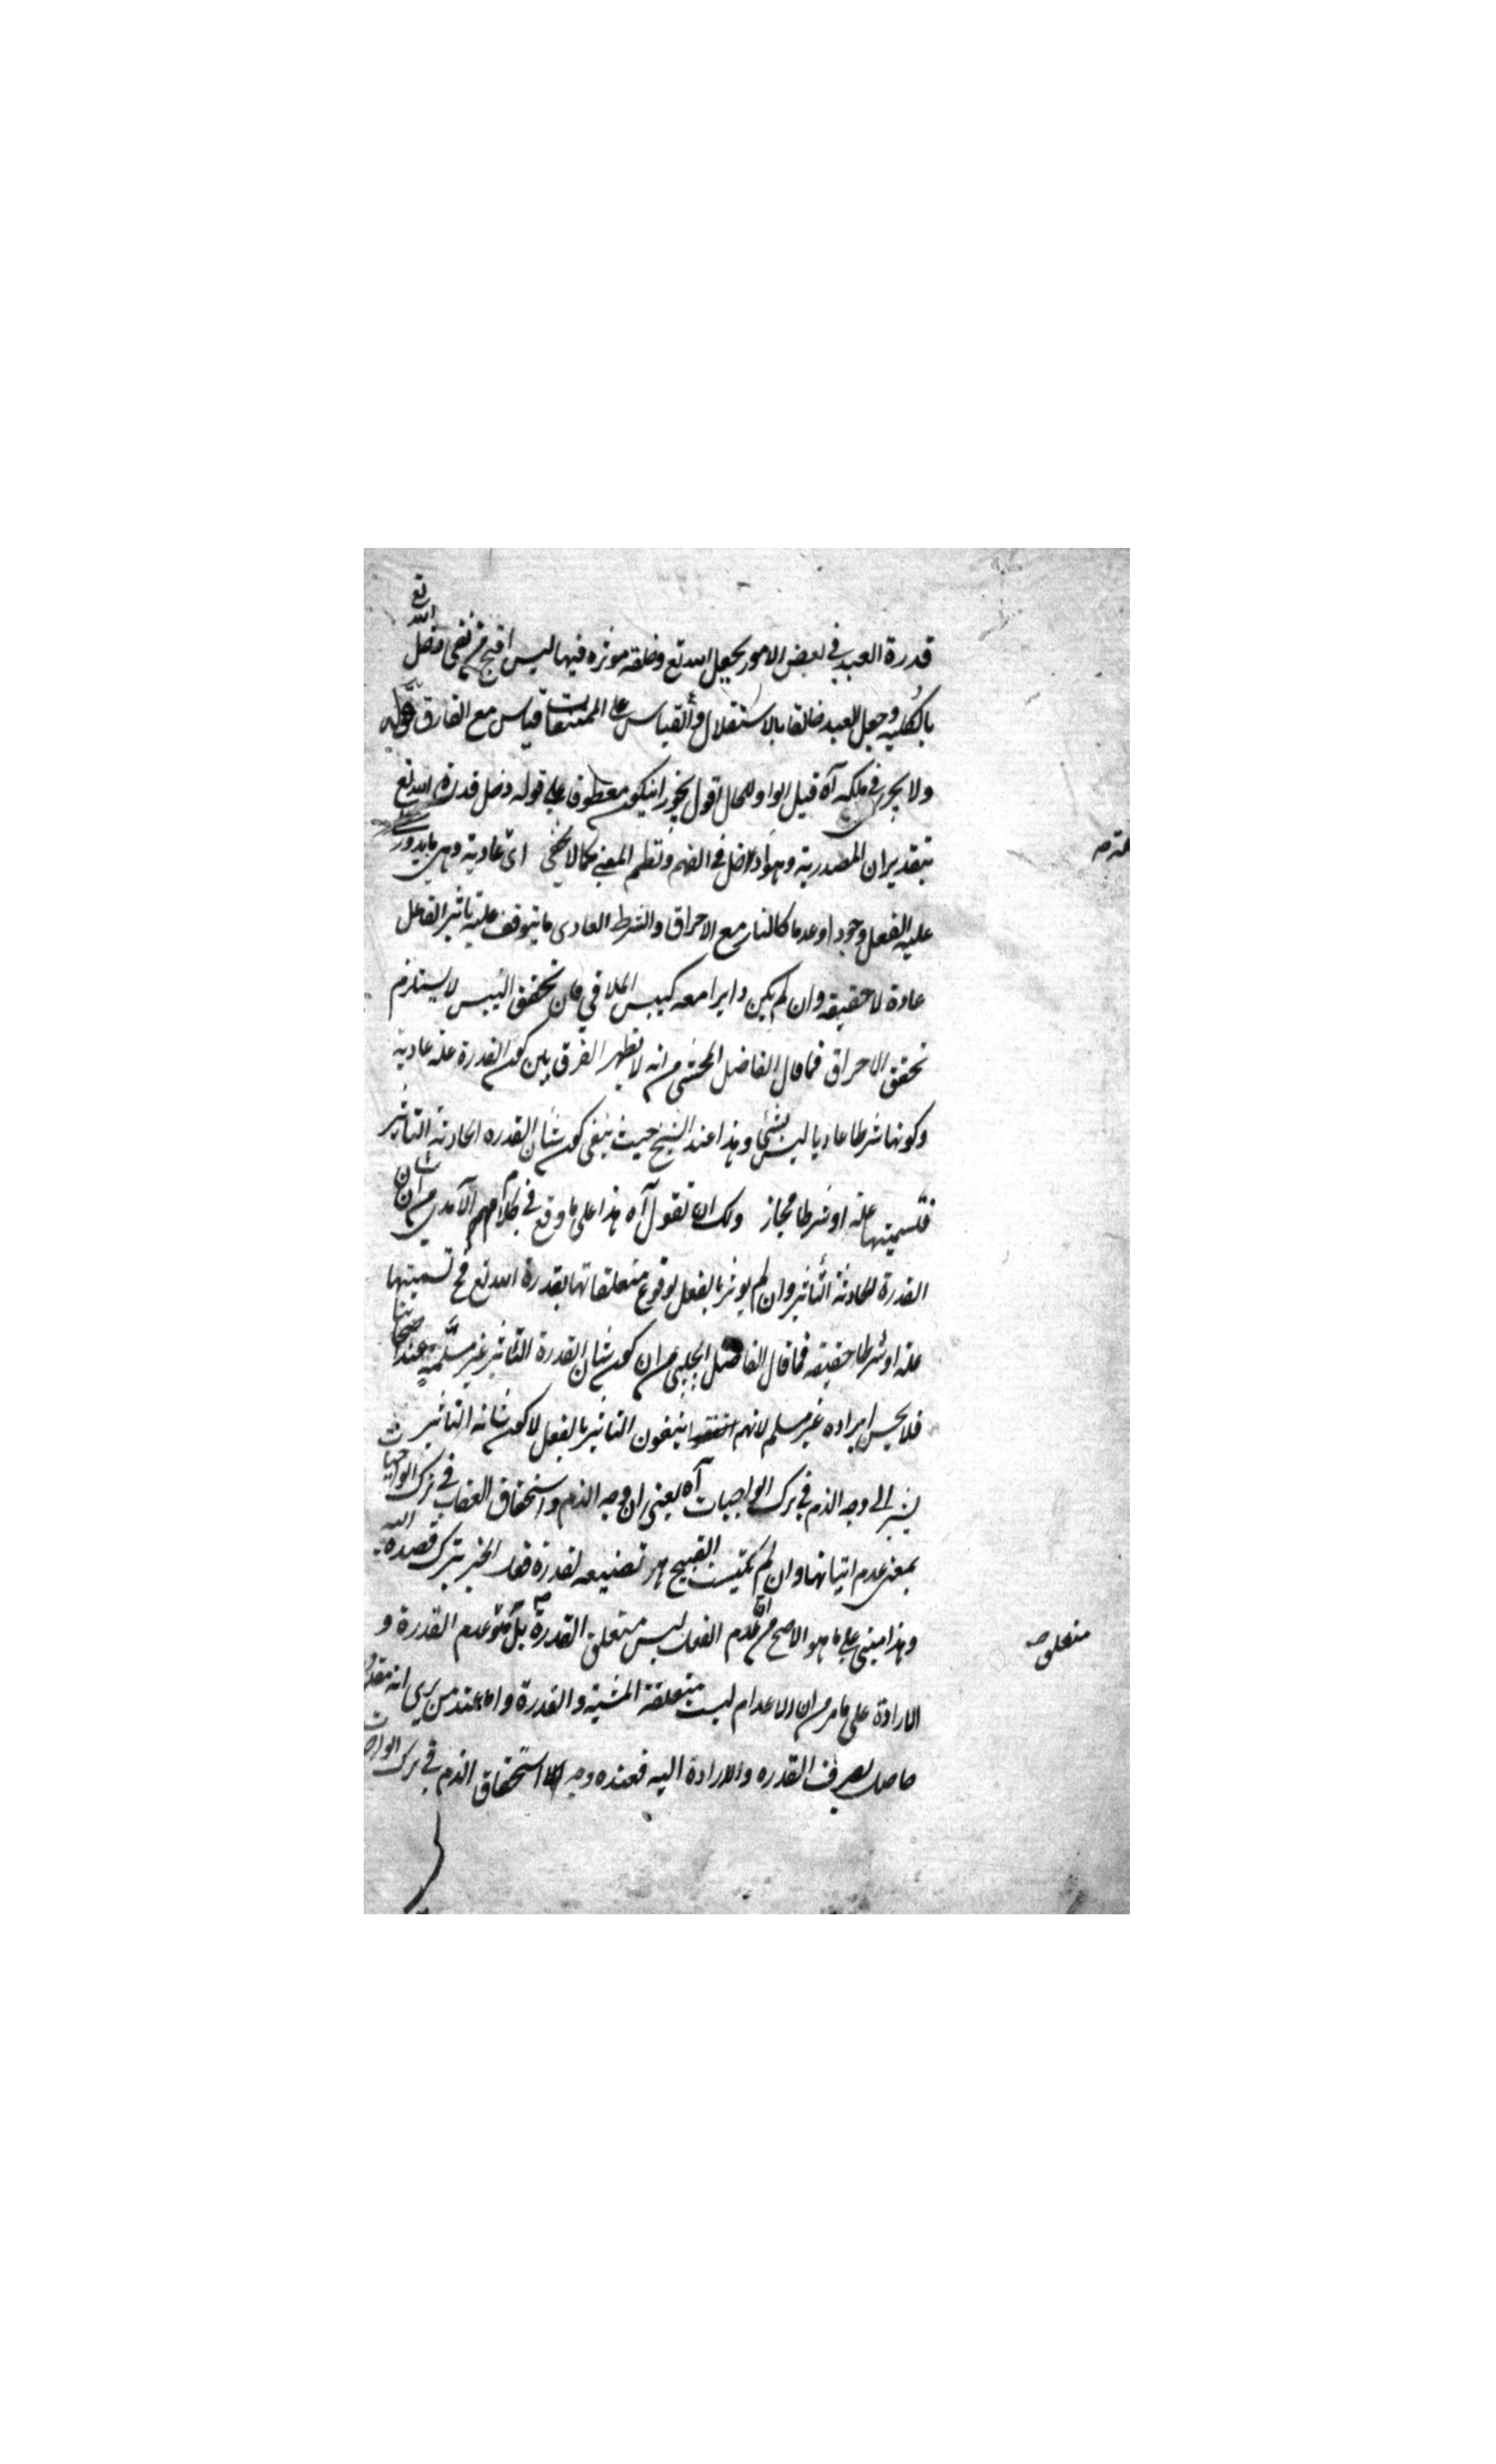 قدرة العبد في بعض الامور بجعل الله تع وخلقه موثره فيها ليس اقبح من نفى دخل الله تع
بالكليه وجعل العبد خالقا بالاستقلال والقياس على الممتنعات قياس مع الفارق قوله
ولا يجرى في ملكه آه قيل الواو للحال اقول يجوز ان يكون معطوفا على قوله دخل قدرة الله تع
بتقدير ان المصدرية وهو ادخل في الفهم ونظم المعنى كما لا يخفى اى عادية وهى ما يدور
عليه الفعل وجودا وعدما كالنار مع الاحراق والشرط العادى ما يتوقف عليه تاثير الفاعل
عادة لا حقيقه وان لم يكن دايرا معه كيبس الملاقي فان تحقق اليبس لا يستلزم
تحقق الاحراق فما قال الفاضل المحشى من انه لا يظهر الفرق بين كون القدرة علة عادية
وكونها شرطا عاديا ليس بشئ وهذا عند الشيخ حيث ينفى كون شان القدره الحادثة التاثير
فتسميتها علة او شرطا مجاز ولك ان تقول آه هذا على ما وقع في كلام الآمدى من ان شان
القدرة الحادثة التاثير وان لم يوثر بالفعل لوقوع متعلقاتها بقدرة الله تع فح تسميتها
علة او شرطا حقيقه فما قال الفاضل الجلبى من ان كون شان القدرة التاثير غير مسلمة عند اصحابنا
فلا يحسن ايراده غير مسلم لانهم ينفون التاثير بالفعل لا كون شانه التاثير
يشير الى وجه الذم في ترك الواجبات آه يعنى ان وجه الذم واستحقاق العقاب في ترك الواجبات
بمعنى عدم اتيانها وان لم يكتسب القبيح هو تضييعه لقدرة فعل الخير بترك قصده اليه
وهذا مبنى على ما هو الاصح من ان عدم الفعل ليس متعلق القدرة بل هو عدم القدرة و
متعلق صح
الارادة على ما مر من ان الاعدام ليست متعلقة المشية والقدرة واما عند من يرى انه مقدور
حاصل بصرف القدره والارادة اليه فعنده وجه استحقاق الذم في ترك الواجبات